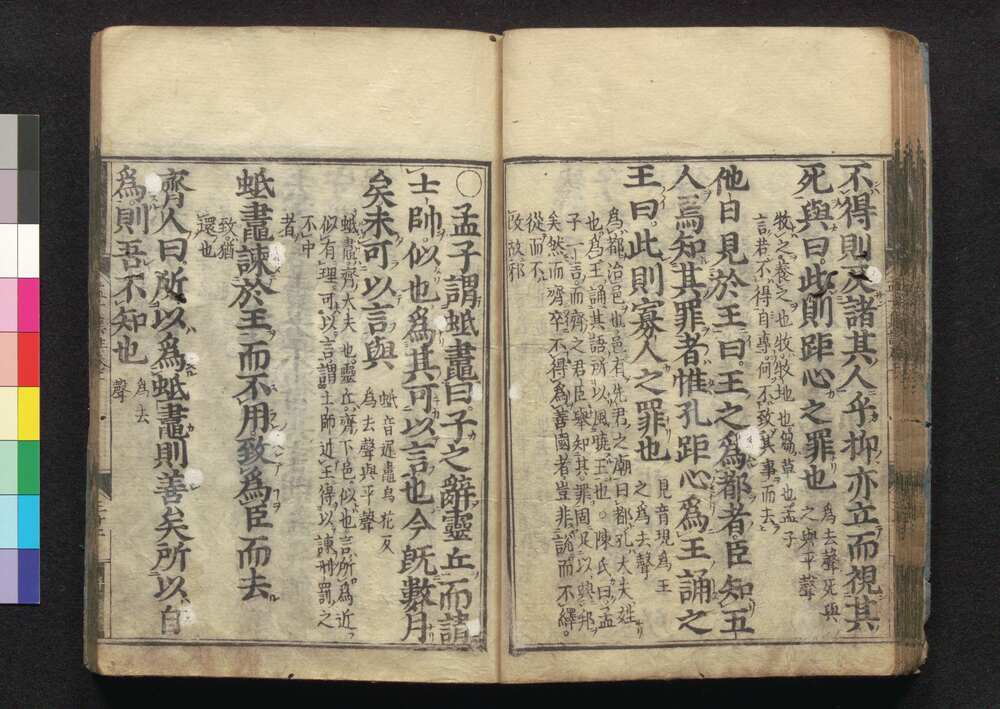 不得則反諸其人乎抑亦立而視其
死與曰此則距心之罪也
為去聲死與
之與平聲
牧之養之也牧牧地也芻草也孟子
言若不得自專何不致其事而去
他日見於王曰王之為都者臣知五
人焉知其罪者惟孔距心為王誦之
王曰此則寡人之罪也
見音現為王
之為去聲
為都治邑也邑有先君之廟曰都孔大夫姓
也為王誦其語所以風曉王也。陳氏曰孟
子一言而齊之君臣舉知其罪固足以興邦
矣然而齊卒不得為善國者豈非說而不繹。
從而不
改故邪
○孟子謂蚳鼃曰子之辭靈丘而請
士師似也為其可以言也今既數月
矣未可以言與
蚳音遲鼃烏花反
為去聲與平聲
蚳鼃齊大夫也靈丘齊下邑似也言所為近
似有理可以言謂士師近王得以諫刑罰之
不中
者
蚳鼃諫於王而不用致為臣而去
致猶
還也
齊人曰所以為蚳鼃則善矣所以自
為則吾不知也
為去
聲